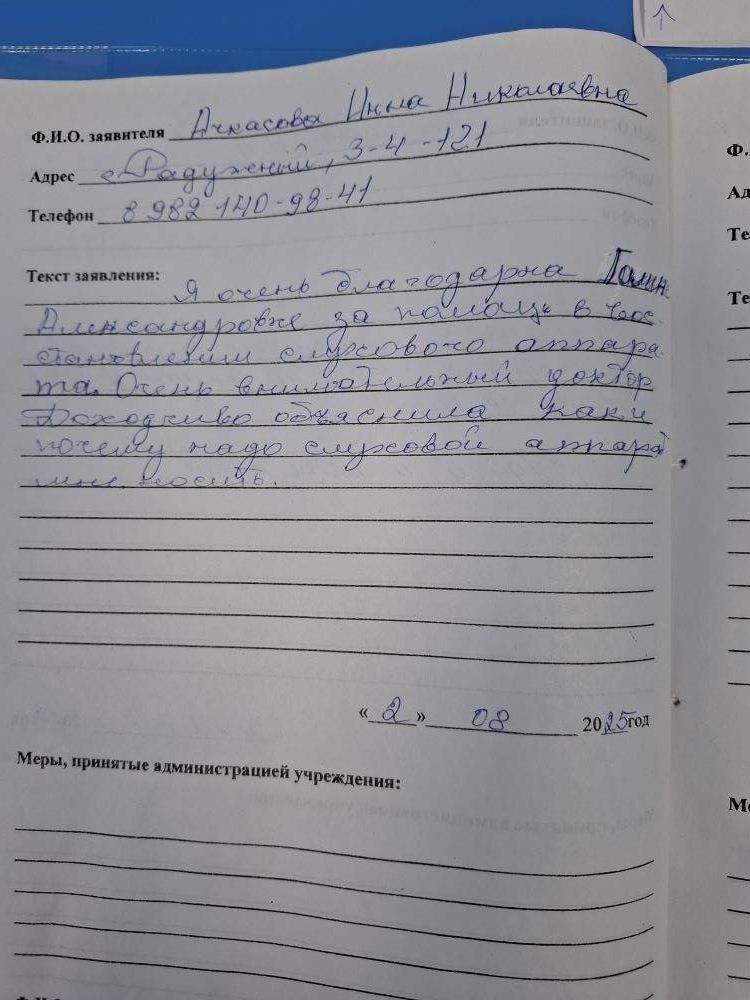 Ф.И.О. заявителя Ачкасова Инна Николаевна
Адрес г Радужный, 3-4-121
Телефон 8 982 140-98-41
Текст заявления:
Я очень благодарна Галине
Александровне за помощь в восс-
становлении слухового аппара-
та. Очень внимательный доктор
Доходчиво объяснила как и
почему надо слуховой аппарат
мне носить.
«2» 08 2025год
Меры, принятые администрацией учреждения:
Ф.
Ад
Те
Те
Ме